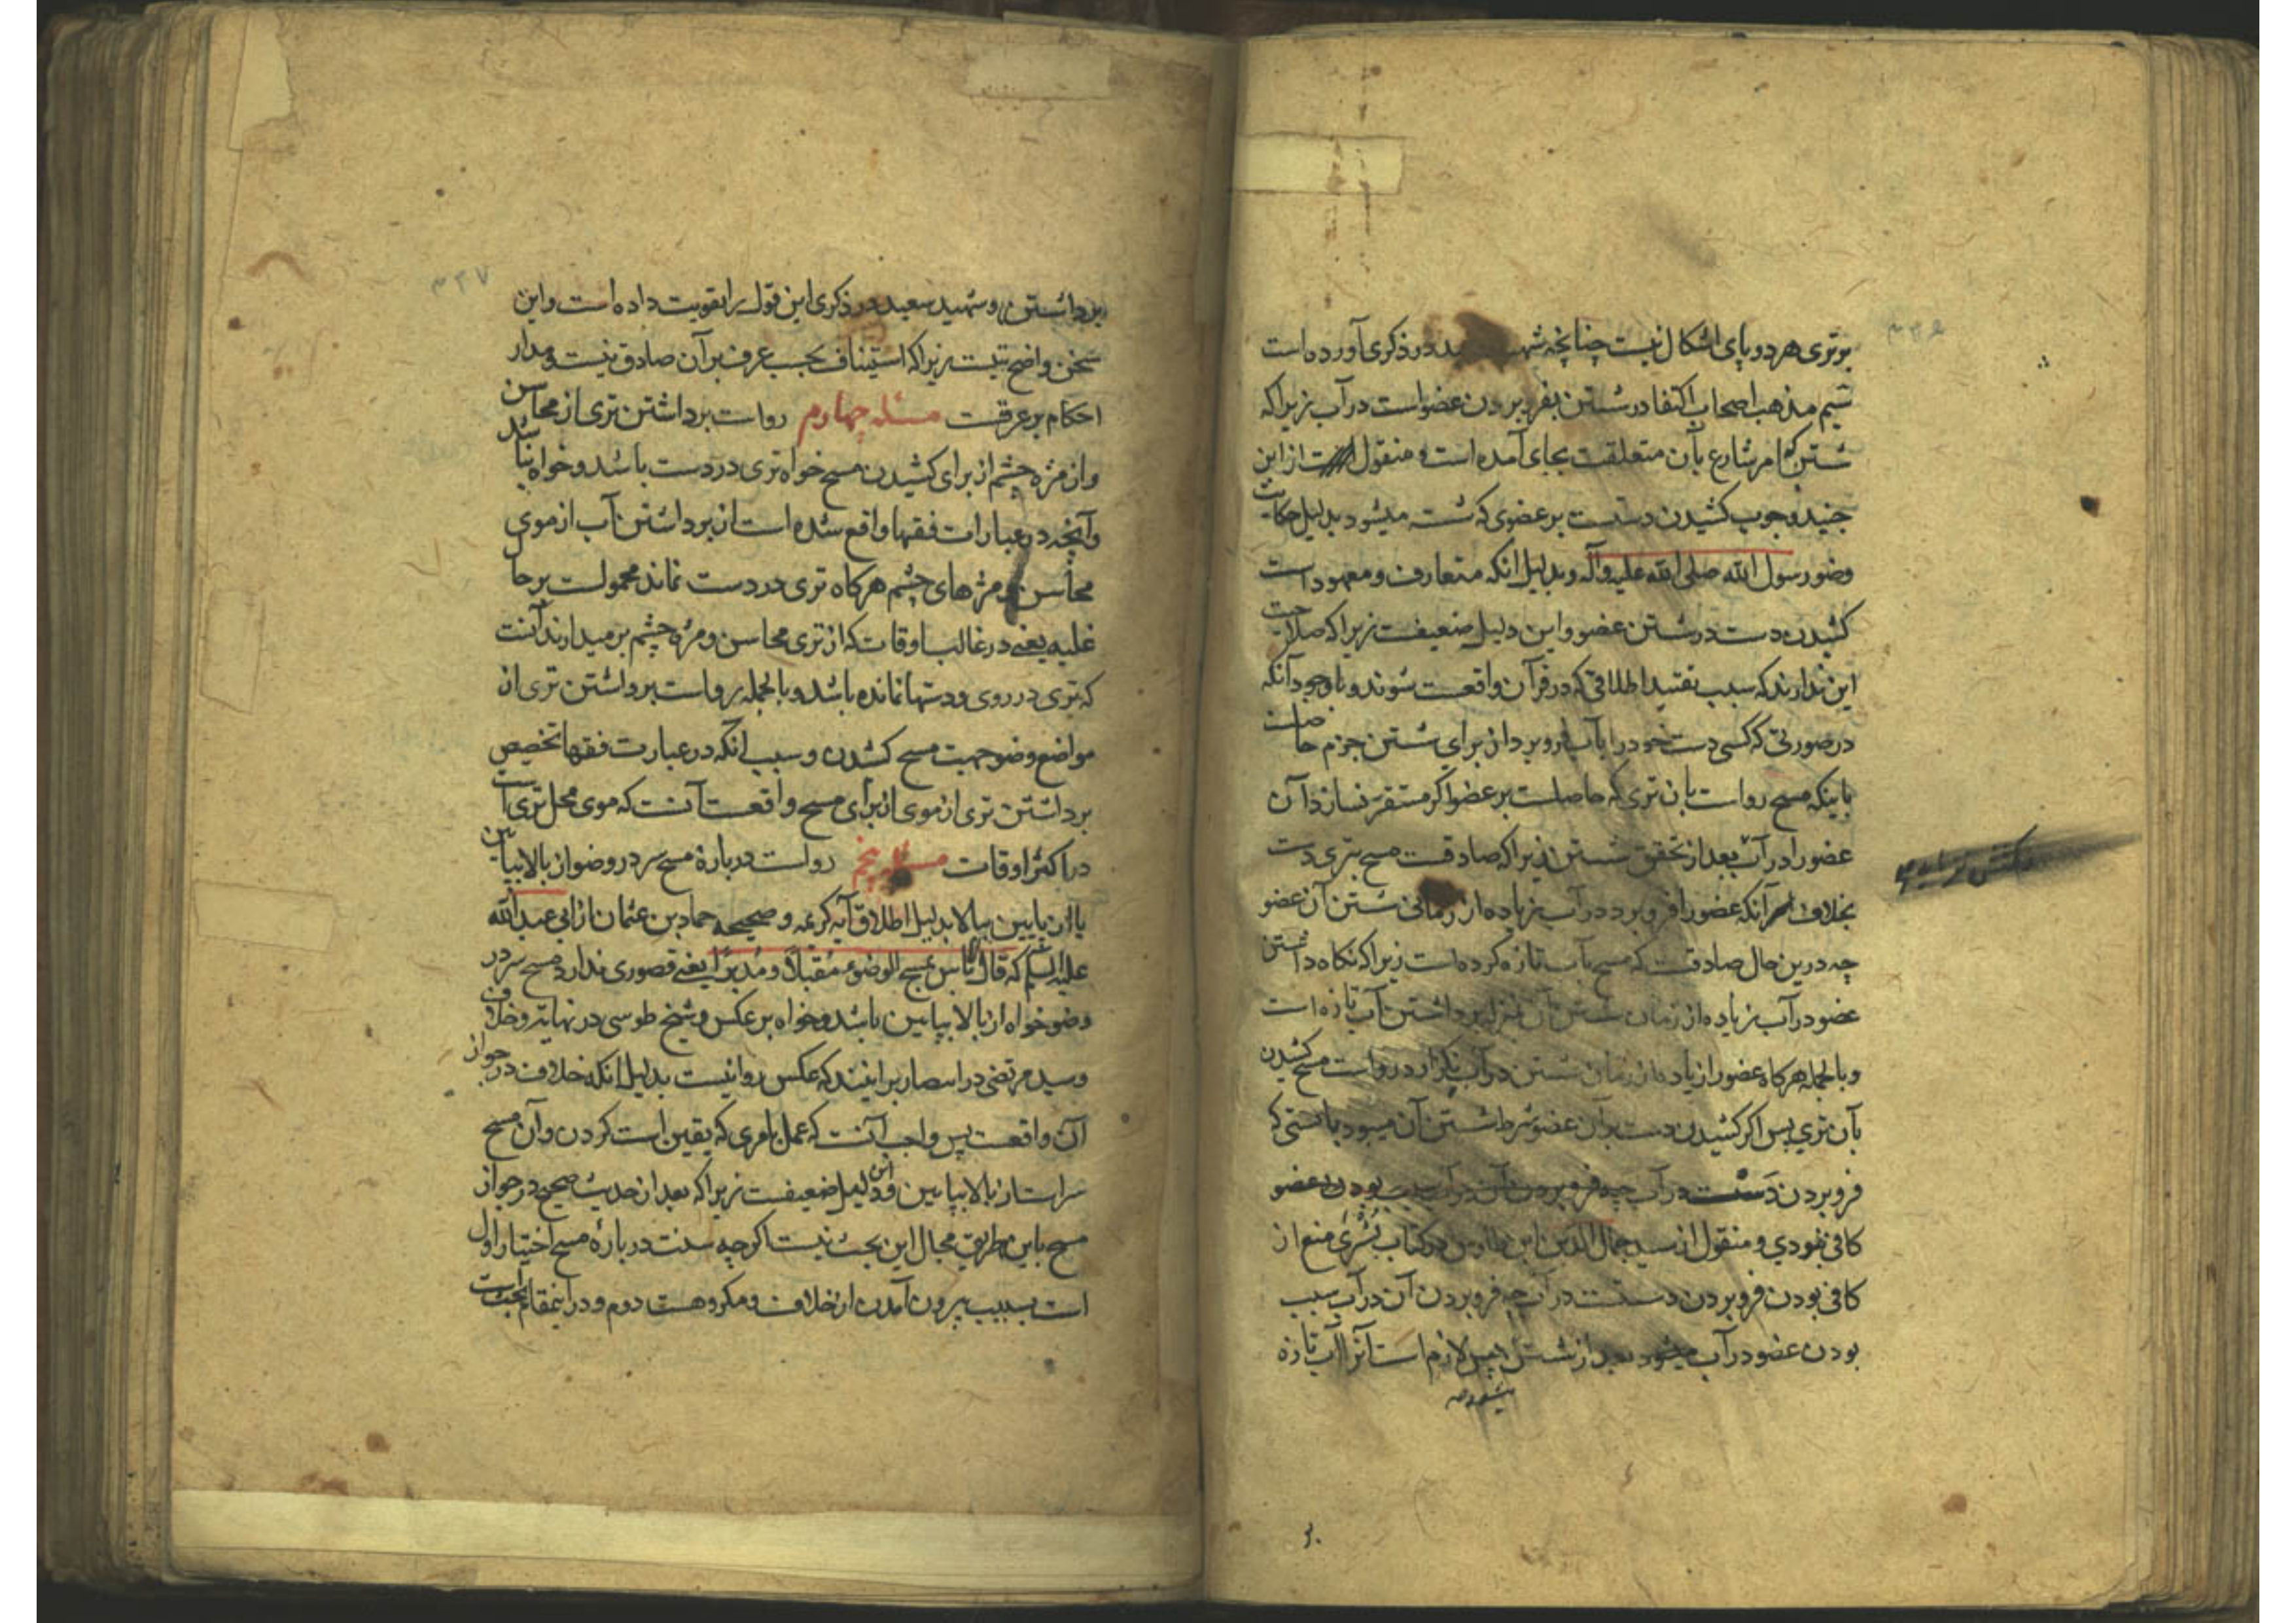 ۳۳۶
برتری هر دو پای اشکال نیست چنانچه در ذکری آورده است
سیم مذهب اصحاب اکتفا در شستن بفرو بردن عضو است در آب زیرا که
شستن که امر شارع بآن متعلقست بجای آمده است و منقول است از ابن
جنید وجوب کشیدن دست بر عضوی که شسته میشود بدلیل حکایت
وضو رسول الله صلی الله علیه وآله و بدلیل انکه متعارف و معهود است
کشیدن دست در شستن عضو و این دلیل ضعیفست زیرا که صلاحیت
این ندارند که سبب تقیید اطلاقی که در قرآن واقعست شوند و با وجود آنکه
در صورتی که کسی دست خود را بآب فرو برد از برای شستن جزم حاصلست
باینکه مسح رواست بان تری که حاصلست بر عضو اکر مستقر نسازد آن
عضو را در آب بعد از تحقق شستن زیرا که صادقست مسح بتری دست
بخلاف آنکه عضو را فرو برد در آب زیاده از زمانی شستن آن عضو
چه درین حال صادقست که مسح بآب تازه کرده است زیرا که نکاه داشتن
عضو در آب زیاده از زمان شستن آن برداشتن آب تازه است
و بالجمله هرکاه عضو را زیاده از زمان شستن در آب نکذارد رواست مسح کشیدن
بآن تری پس اکر کشیدن دست بران عضو شرط شستن آن میبود بایستی که
فرو بردن دست در آب چه فرو بردن آن در آب سبب بودن عضو
کافی نبودی و منقول از سید جمال الدین ابن طاوس در کتاب بشری منع از
کافی بودن فرو بردن دست در آب چه فرو بردن آن در آب سبب
بودن عضو در آب میشود بعد از شستن پس لازم است آنرا آب تازه
بر
۳۳۷
برداشتن و شهید سعید در ذکری این قول را تقویت داده است و این
سخن واضح نیست زیرا که استیناف بحسب عرف بر آن صادق نیست و مدار
احکام بر عرفست مسئله چهارم رواست برداشتن تری از محاسن
و از مژه چشم از برای کشیدن مسح خواه تری در دست باشد و خواه نباشد
و آنچه در عبارات فقها واقع شده است از برداشتن آب از موی
محاسن و مژهای چشم هرکاه تری در دست نماند محمولست بر حال
غلبه یعنی در غالب اوقات که از تری محاسن و مژه چشم برمیدارند آنست
که تری در روی و دستها نمانده باشد و بالجمله رواست برداشتن تری از
مواضع وضو جهت مسح کشدن و سبب انکه در عبارت فقها تخصیص
برداشتن تری از موی از برای مسح واقعست آنست که موی محل تری است
در اکثر اوقات مسئله پنجم رواست در بارهٔ مسح سر در وضو از بالا بپایین
یا از پایین ببالا بدلیل اطلاق آیه کریمه و صحیحه حماد بن عثمان از ابی عبدالله
علیه السلم که قال لا باس بمسح الوضوء مقبلاً و مدبراً یعنی قصوری ندارد مسح سر در
وضو خواه از بالا بپایین باشد و خواه بر عکس و شیخ طوسی در نهایه و خلاف
و سید مرتضی در انتصار برانیند که عکس روا نیست بدلیل انکه خلاف در جواز
آن واقعست پس واجب آنست که عمل بامری که یقین است کردن و آن مسح
سر است از بالا بپایین و این دلیل ضعیفست زیرا که بعد از حدیث صحیح در جواز
مسح باین طریق مجال این بحث نیست اکر چه سنت در بارهٔ مسح اختیار اول
است بسبب بیرون آمدن از خلاف و مکروهست دوم و درانمقام بحث است